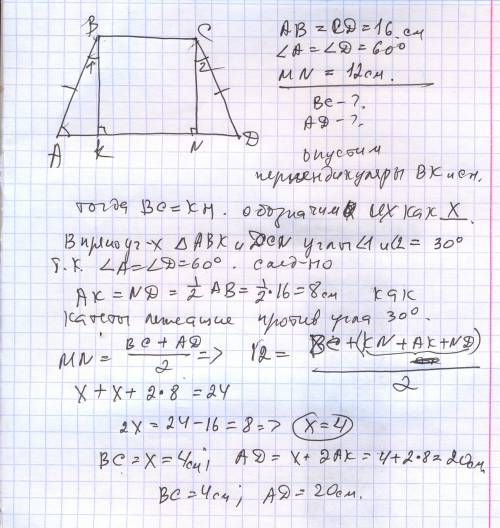 B C
1 2
A K N D
AB = CD = 16 см
∠A = ∠D = 60°
MN = 12 см.
BC - ?
AD - ?
опустим
перпендикуляры BK и CH.
тогда BC = KH. обозначим их как X.
В прямоуг-х △ ABK и DCN углы ∠1 и ∠2 = 30°
т.к. ∠A = ∠D = 60°. след-но
AK = ND = 1/2 AB = 1/2 · 16 = 8 см как
катеты лежащие против угла 30°.
MN = (BC + AD)/2 => 12 = (BC + (KN + AK + ND))/2
X + X + 2·8 = 24
2X = 24 - 16 = 8 => X = 4
BC = X = 4 см; AD = X + 2AK = 4 + 2·8 = 20 см,
BC = 4 см; AD = 20 см.